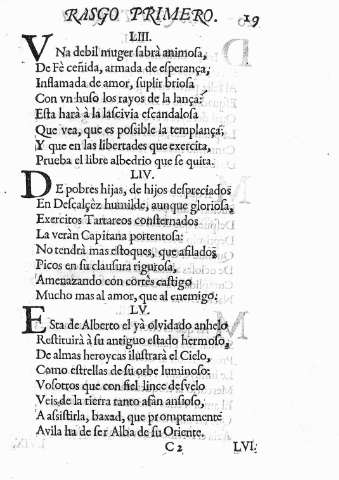 RASGO PRIMERO. 19
LIII.
VNa debil muger sabrà animosa,
De Fè ceñida, armada de esperança,
Inflamada de amor, suplir briosa
Con vn huso los rayos de la lança:
Esta harà à la lascivia escandalosa
Que vea, que es possible la templança;
Y que en las libertades que exercita,
Prueba el libre albedrio que se quita.
LIV.
DE pobres hijas, de hijos despreciados
En Descalçèz humilde, aunque gloriosa,
Exercitos Tartareos consternados
La veràn Capitana portentosa:
No tendrà mas estoques, que afilados
Picos en su clausura rigurosa,
Amenazando con cortès castigo
Mucho mas al amor, que al enemigo.
LV.
ESta de Alberto el yà olvidado anhelo
Restituirà à su antiguo estado hermoso,
De almas heroycas ilustrarà el Cielo,
Como estrellas de su orbe luminoso:
Vosotros que con fiel lince desvelo
Veis de la tierra tanto afàn ansioso,
A assistirla, baxad, que promptamente
Avila ha de ser Alba de su Oriente.
C 2 LVI.